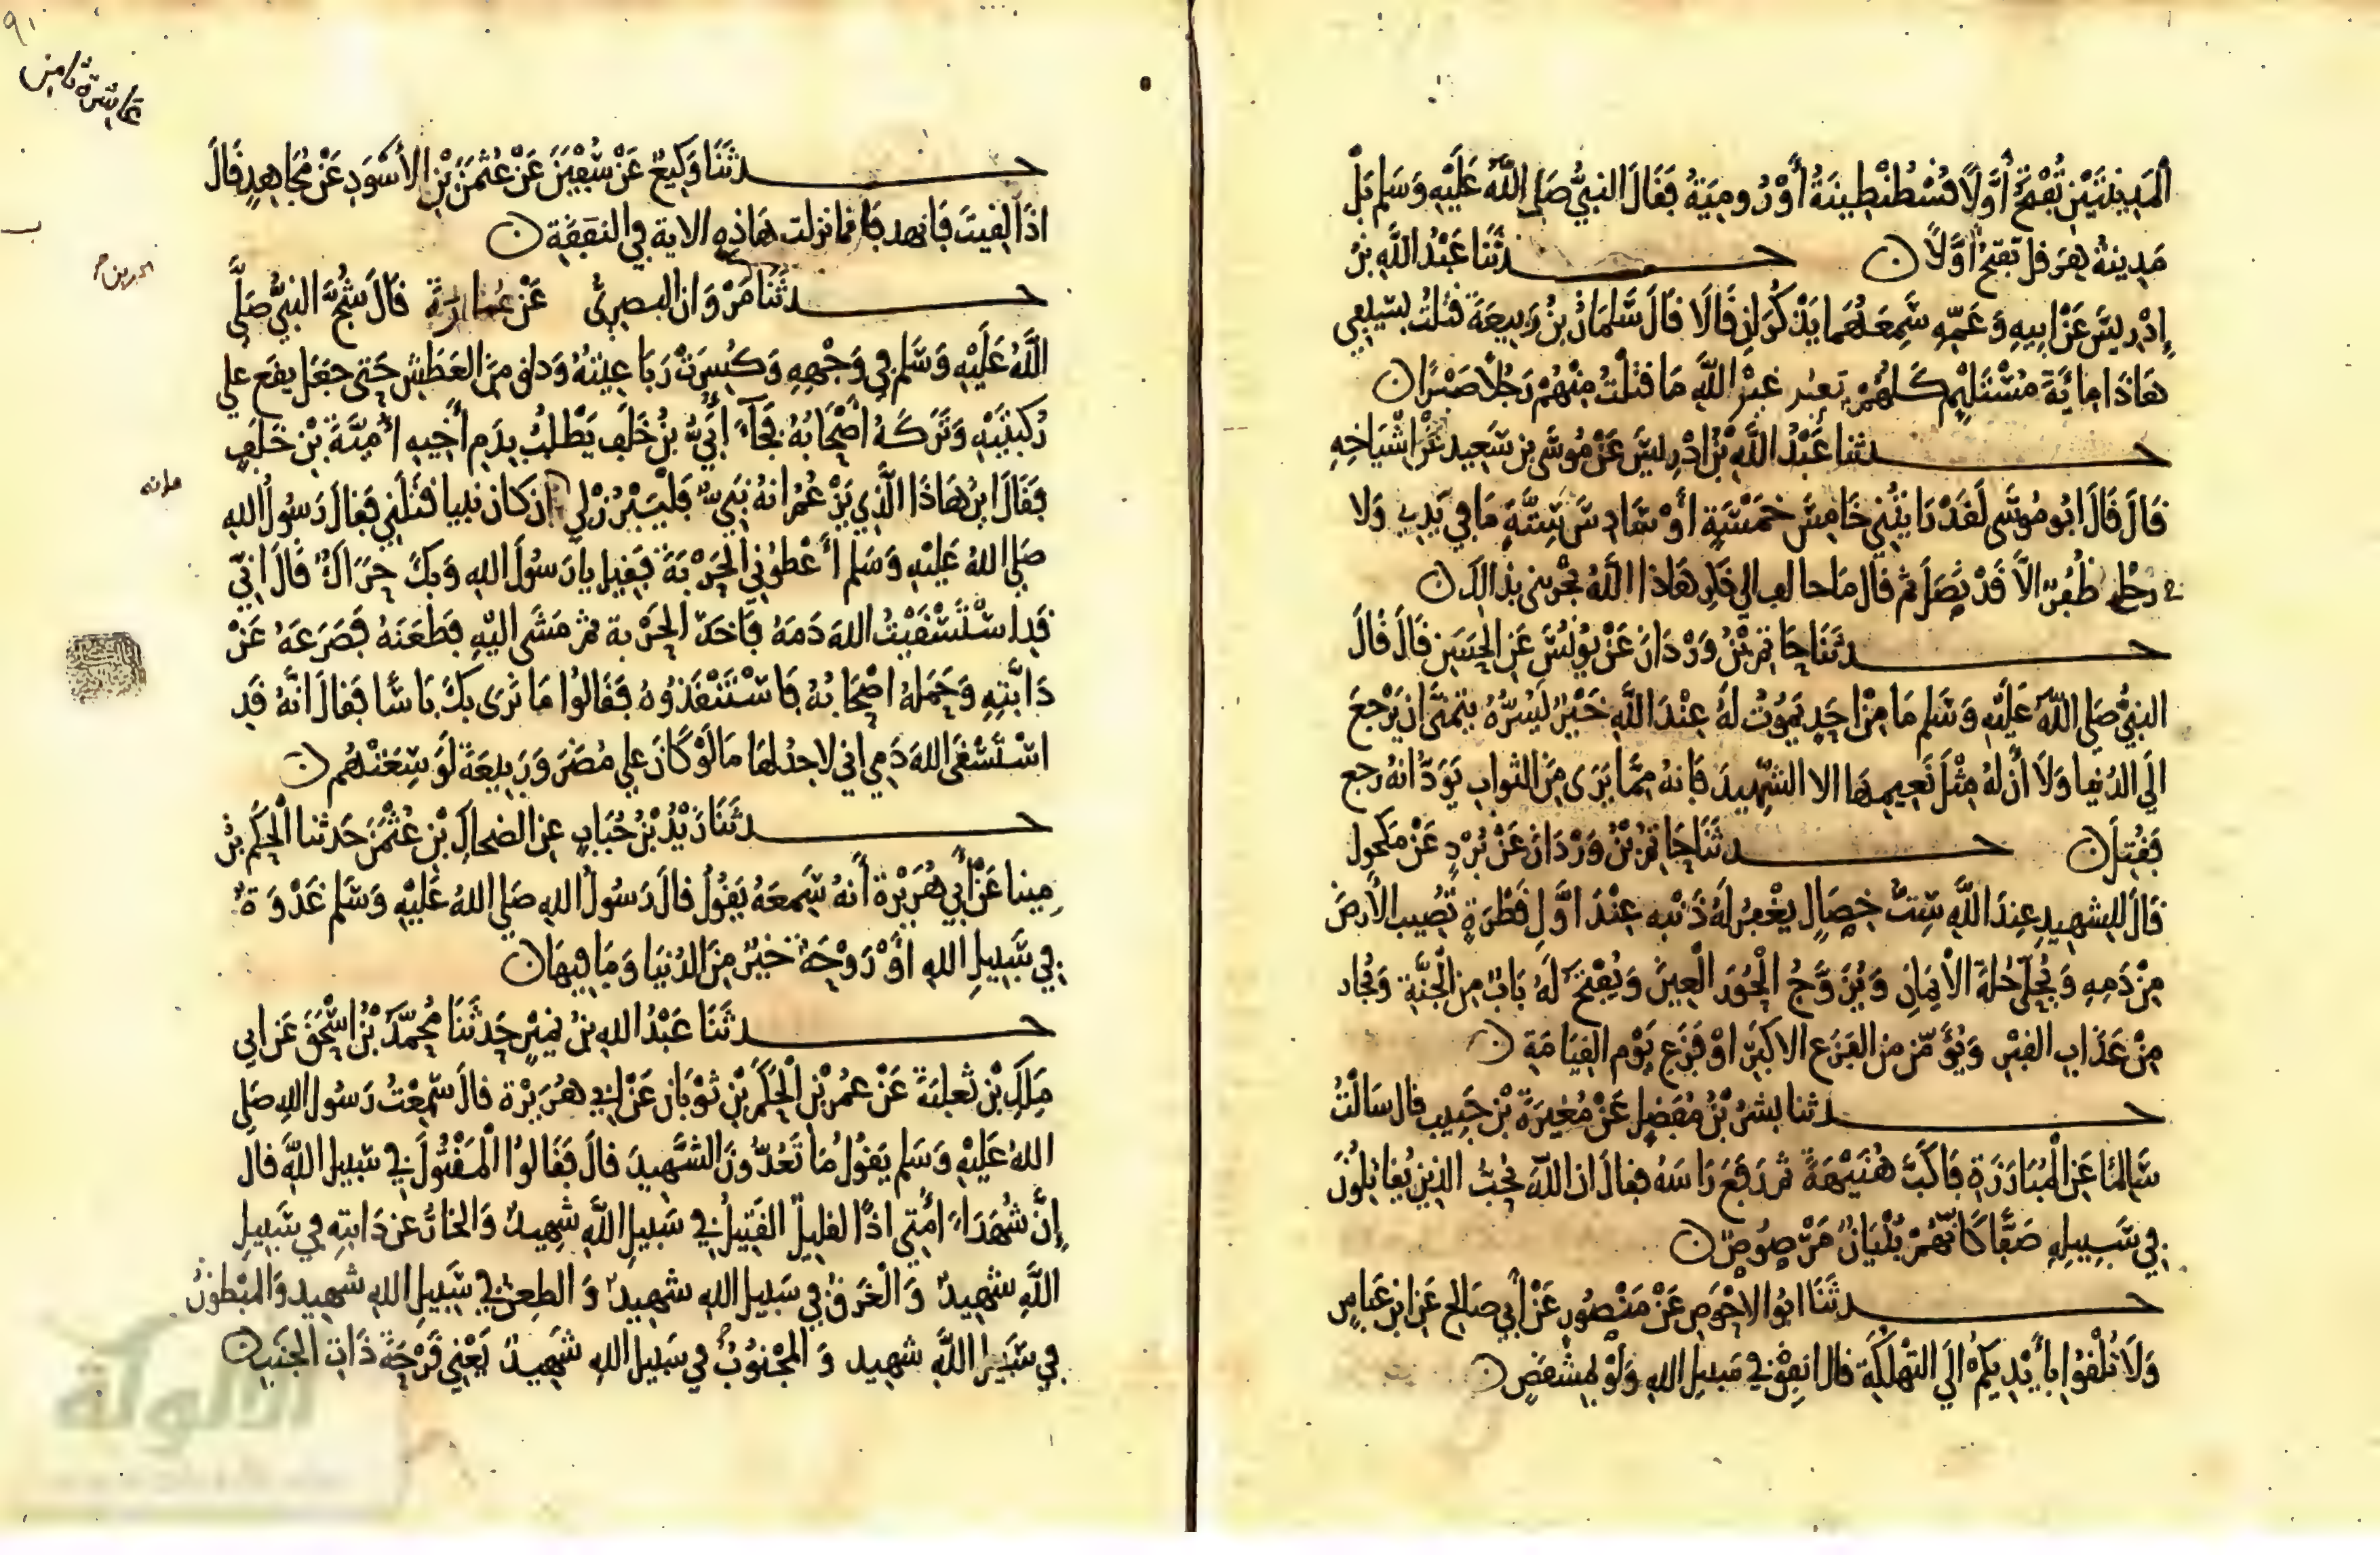 الْمَدِينَتَيْنِ تُفْتَحُ أَوَّلًا قُسْطُنْطِينَةُ أَوْ رُومِيَةُ فَقَالَ النبيُّ صَلى اللهُ عَلَيْهِ وَسَلم بَلْ
مَدِينَةُ هِرَقل تُفتَحُ أوَّلًا ن حـــدثَنَا عَبْدُ اللَّهِ بْنُ
إِدْرِيسَ عَنْ ابِيهِ وَعَمِّهِ سَمِعَهُمَا يَذْكُرَانِ قَالَا قَالَ سَلمَانُ بْنُ رَبِيعَةَ قتلتُ بِسَيْفِي
هَاذَا مِائَةَ مُسْتَلئِمٍ كلهُمْ يَعبُد غيْرَ اللَّهِ مَا قتلْتُ مِنْهُمْ رَجُلًا صَبْرًا ن
حـــدثنا عَبْدُ اللَّهِ بْنُ ادْرِيسَ عَنْ مُوسَى بن سَعِيد عَنْ اشْيَاخِهِ
قَالَ قَالَ ابُو مُوسَى لَقَدْ رَايْتُنِي خَامِسَ خمْسَةٍ أوْ سَادِسَ سِتَّةٍ مَا فِي يَدِي وَلا
رجْلي ظُفُرٌ الاَّ قَدْ نَصَلَ ثم قَالَ مَا خالف الى ذكر هَاذا اللَّهُ يجْزينى بذالك ن
حـــدثَنَا حَاتم بْنُ وَرْدَانَ عَنْ يُونُسَ عَنِ الحَسَنِ قَالَ قَالَ
النبيُّ صَلى اللهُ عَلَيْهِ وَسَلم مَا مِنْ احَدٍ يَمُوتُ لَهُ عِنْدَ اللَّهِ خَيْرٌ يَسُرُّهُ يتمنى ان يَرْجعَ
الَى الدُّنيا وَلَا أن لهُ مِثْلَ نَعِيمِهَا الا الشهِيدَ فَانهُ مِمَّا يَرَى مِنَ الثوابِ يَوَدُّ انهُ رجع
فَقُتِلَ ن حـــدثَنَا حَاتم بْنُ وَرْدَانَ عَنْ بُرْدٍ عَنْ مَكحُول
قَالَ للشهِيدِ عِندَ اللَّهِ سِتُّ خِصَالٍ يغْفِرُ لَهُ ذَنْبه عِنْدَ اوَّلِ قَطْرَةٍ تُصِيبُ الأرضَ
مِنْ دَمِهِ وَيُحَلَّى حُلةَ الايمَانِ وَيُزَوَّجُ الْحُورَ الْعِينَ وَيُفْتَحُ لَهُ بَابٌ مِنَ الْجَنَّةِ وَيُجَار
مِنْ عَذَابِ القبْرِ وَيُؤَمَّنُ مِنَ الفزَع الاكبَرِ اوْ فَزَعِ يَوْمِ القِيَامَةِ ن
حـــدثنا بشرُ بْنُ مُفَضلٍ عَنْ مُغِيرَةَ بْن حَبِيبٍ قال سَالْتُ
سَالِمًا عَنِ الْمُبَارَزَةِ فَاكَبَّ هُنَيْهَةً ثم رَفَعَ رَاسَهُ فقالَ ان اللهَ يُحِبُّ الذين يُقَاتِلُونَ
فِي سَبِيلِهِ صَفًّا كَانهُمْ بُنْيَانٌ مَرْصُوصٌ ن
حـــدثَنَا ابُو الاحْوَصِ عَنْ مَنْصُورٍ عَنْ أبي صَالحٍ عَنِ ابن عَبَّاس
وَلَا تُلْقوُا بِأيْدِيكُمْ الَى التهْلكَةِ قال انفِقْ في سَبِيلِ اللهِ وَلَوْ بمِشْقَصٍ ن
عاشرة ثامن
٩١
حـــدثَنَا وَكِيعٌ عَنْ سُفْيَنَ عَنْ عُثْمَنَ بْنِ الأسْوَدِ عَنْ مُجَاهدٍ قَالَ
اذَا لقيتَ فَانهد فَانما نزلت هَاذِهِ الاية في النفَقَةِ ن
حـــدثَنَا مَرْوَان البصرىُّ عَنْ عُمَارَةَ قَالَ شُجَّ النبيُّ صَلَّى
اللَّهُ عَلَيْهِ وَسَلم فِي وَجْهِهِ وَكُسِرَتْ رَبَاعِيَتُهُ وَذلق مِنَ العَطَشِ حَتى جَعَل يقَع على
رُكبَتَيْهِ وَتَرَكَهُ اصْحَابُهُ فَجَآءَ أُبَيُّ بْنُ خَلَفٍ يَطْلُبُ بِدَمِ أخِيهِ أمَيَّةَ بْن خَلَفٍ
فَقَالَ ابنَ هَاذَا الَّذِي يَزْعُمُ انهُ نَبِيٌّ فَليَبْرُزْ لي ان كان نبيا قتَلَني فقالَ رَسُولُ اللهِ
صَلى اللهُ عَليْهِ وَسَلم أَعْطُونِي الحَرْبَةَ فَقِيلَ يَا رَسُولَ اللهِ وَبِكَ حِرَاكٌ قَالَ انّي
قَد اسْتَسْقَيْتُ اللهَ دَمَهُ فَاخَذَ الحَرْبة ثم مَشَى اليْهِ فطَعَنَهُ فَصَرَعَهُ عَنْ
دَابَّتِهِ وَحَمَلهُ اصْحَابُهُ فَاسْتَنْقَذُوهُ فَقَالُوا مَا نَرَى بكَ بَاسًا فَقالَ انَّهُ قَدِ
اسْتَسْقَى اللهَ دَمِي اني لاجدُ لهَا مَا لَوْ كَانَ على مُضَرَ وَرَبيعَةَ لَوَسِعَتْهُم ن
حـــدثَنَا زَيْدُ بْنُ حُبَابٍ عن الضحاكِ بْنِ عُثْمَنَ حَدثنا الْحَكَم بْنُ
مِينا عَنْ أبِي هُرَيْرَةَ أنهُ سَمِعَهُ يَقُولُ قالَ رَسُولُ اللهِ صَلى اللهُ عَليْهِ وَسَلم غَدْوَةٌ
فِي سَبِيلِ اللهِ اوْ رَوْحَةٌ خَيْرٌ مِنَ الدُّنيَا وَمَا فِيهَا ن
حـــدثَنَا عَبْدُ اللهِ بْنُ نمَيْرٍ حَدثَنَا مُحَمَّدُ بْنُ اسْحَقَ عَن ابي
مَلِكِ بْنِ ثَعلبَةَ عَنْ عمُرَ بْنِ الْحَكَمِ بْنِ ثَوْبَانَ عَنْ ابِي هُرَيْرَةَ قالَ سَمِعْتُ رَسُولَ اللهِ صَلى
اللهُ عَلَيْهِ وَسَلم يَقولُ مَا تَعُدُّونَ الشهِيدَ قالَ فَقَالوُا الْمَقْتُولَ فِي سَبِيلِ اللَّهِ قالَ
إِنَّ شُهَدَاءَ امَّتِي اذًا لقلِيلٌ القتِيلُ فِي سَبِيلِ اللَّهِ شهِيدٌ وَالخارُّ عَن دَابتِهِ في سَبِيلِ
اللَّهِ شهِيدٌ وَالْغَرَقُ فِي سَبِيلِ اللهِ شهِيدٌ وَالطعِينُ فِي سَبِيلِ اللهِ شهِيد وَالمَبْطُونُ
فِي سَبِيلِ اللَّهِ شهِيد وَالمَجْنُوبُ فِي سَبِيل اللهِ شهِيدٌ يَعْنِي قَرْحَةَ ذَاتِ الجَنبِ ن
الألوكة